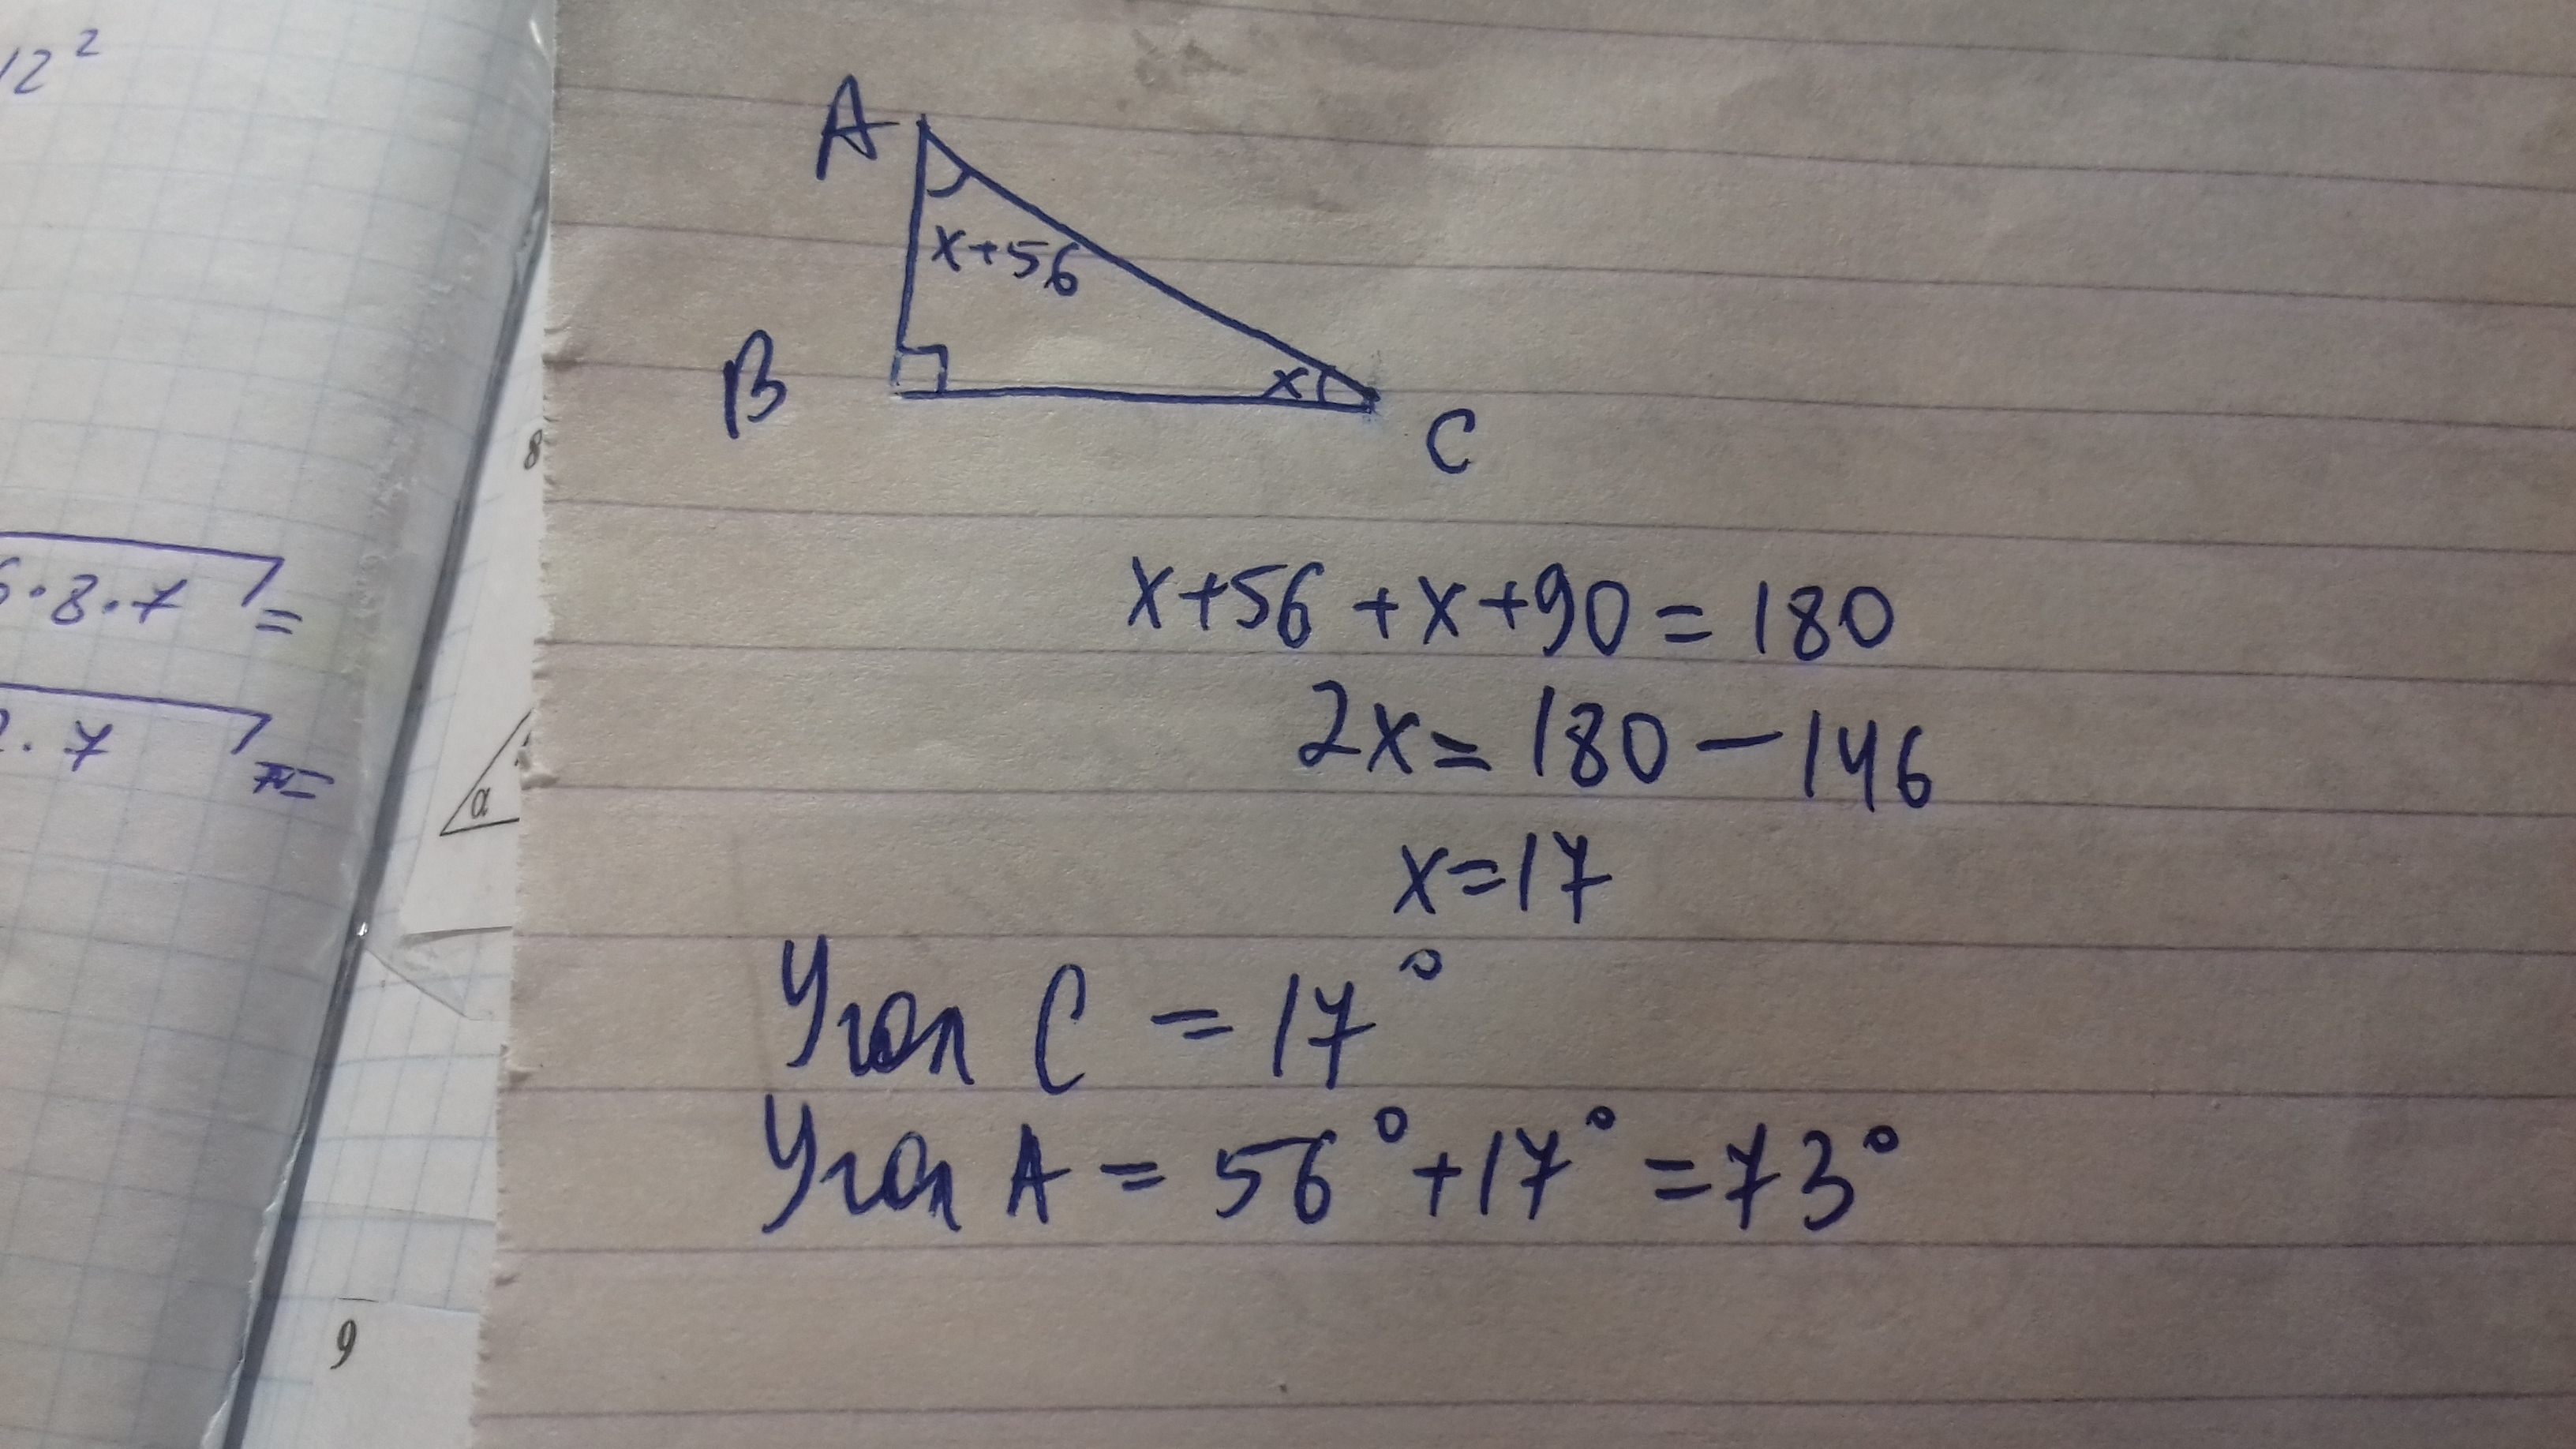 12²
6·8·7 =
2·7 =
8
α
9
A
x+56
B
x
C
x+56+x+90=180
2x=180-146
x=17
Угол C = 17°
Угол A = 56°+17°=73°